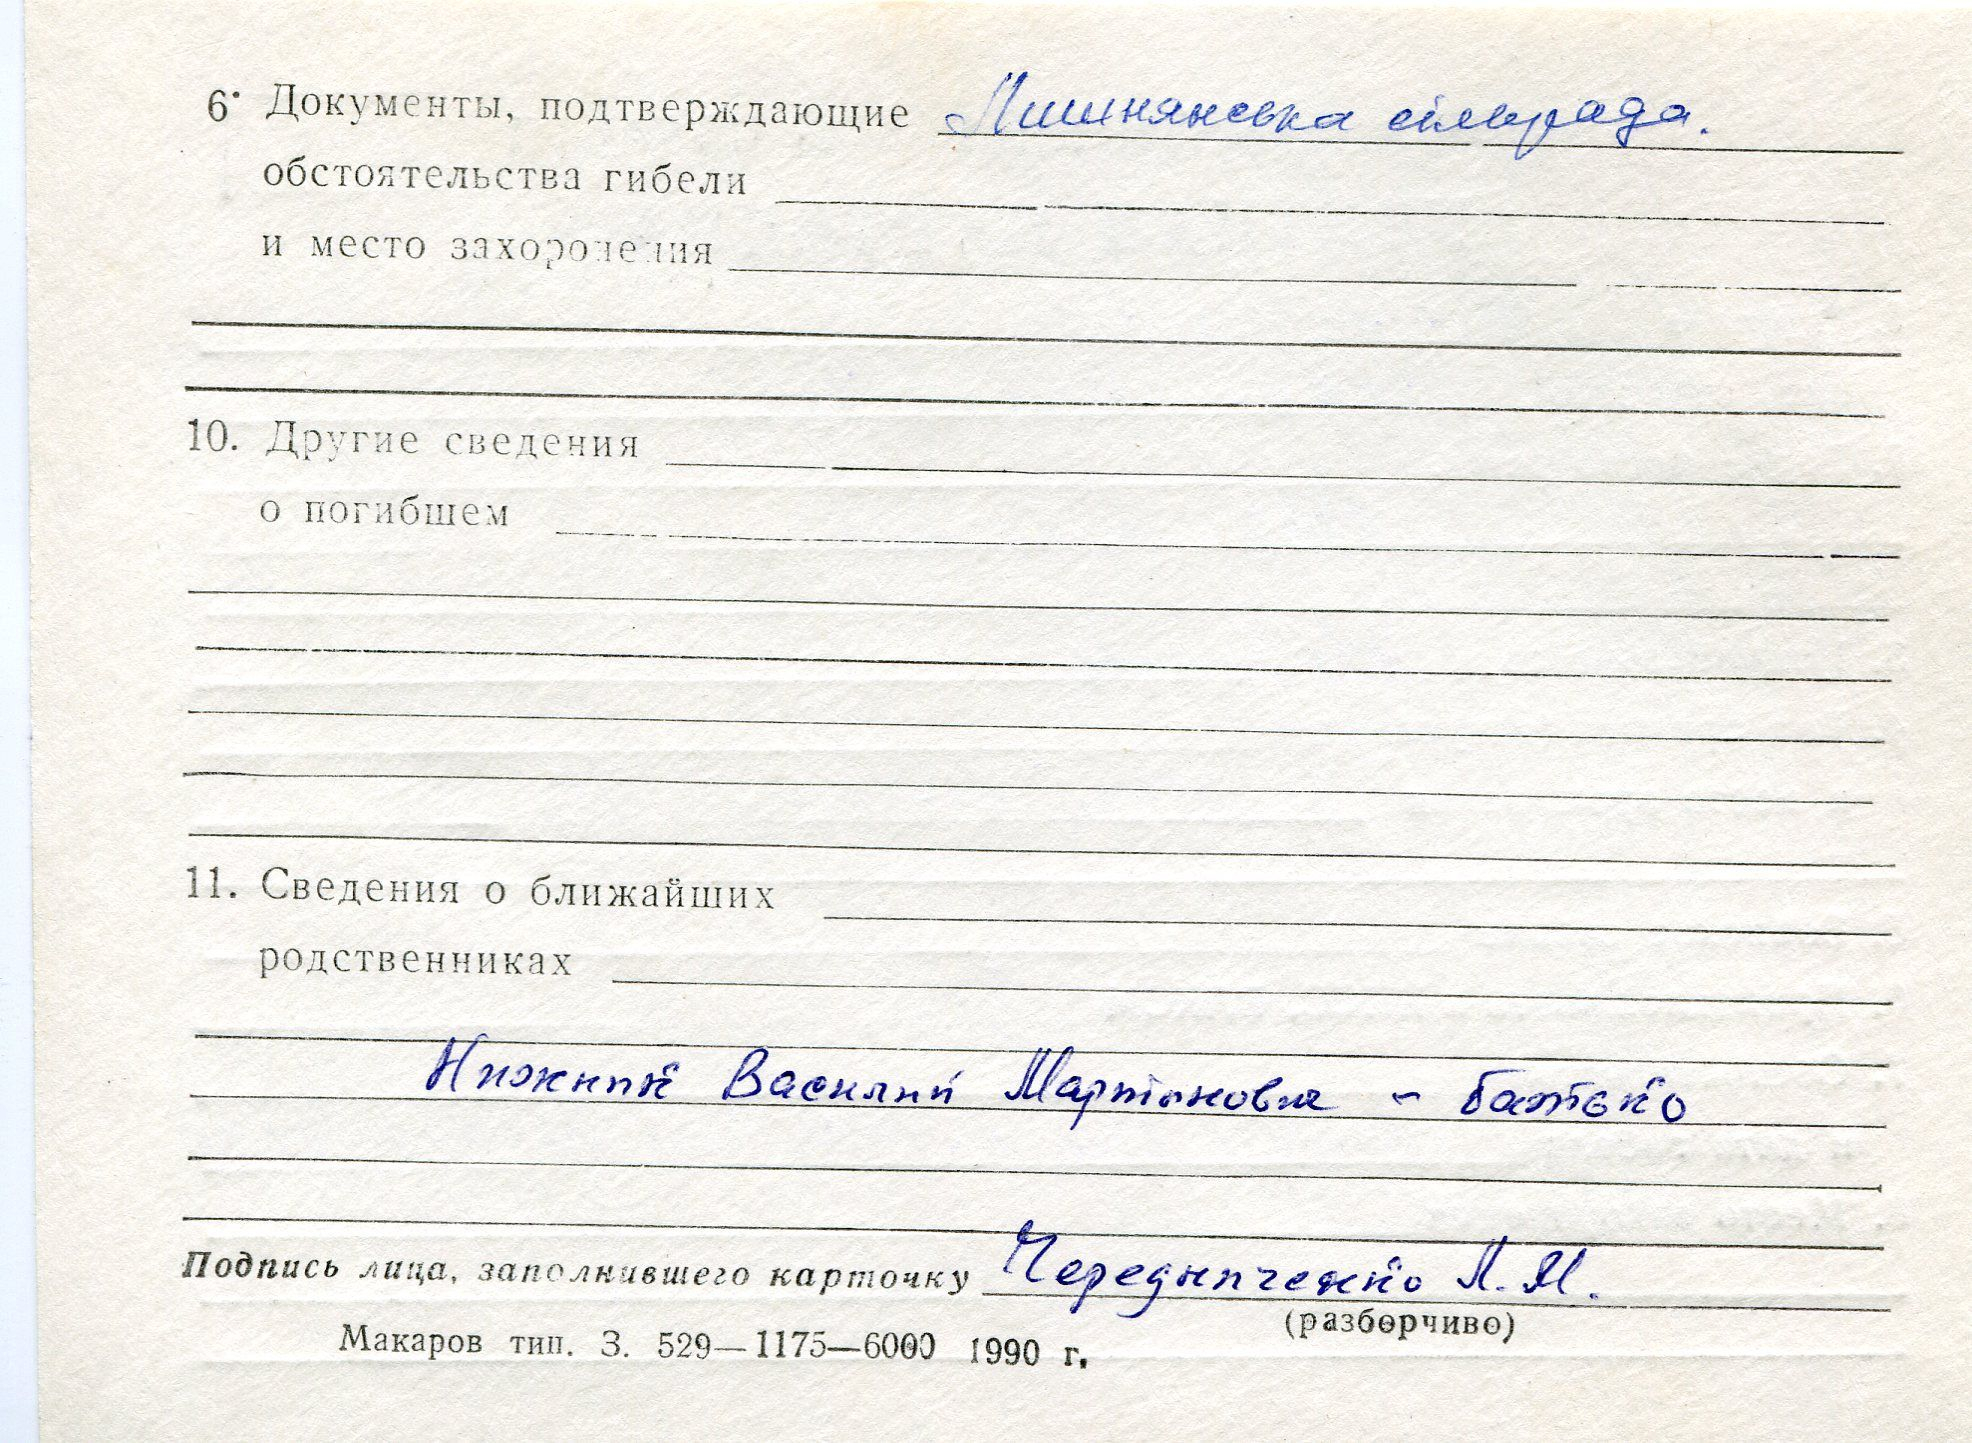 6. Документы, подтверждающие Лишнянська сільрада.
обстоятельства гибели
и место захоронения
10. Другие сведения
о погибшем
11. Сведения о ближайших
родственниках
Нижний Василий Мартинович - батько
Подпись лица, заполнившего карточку Чередниченко Л. М.
(разборчиво)
Макаров тип. З. 529—1175—6000 1990 г.